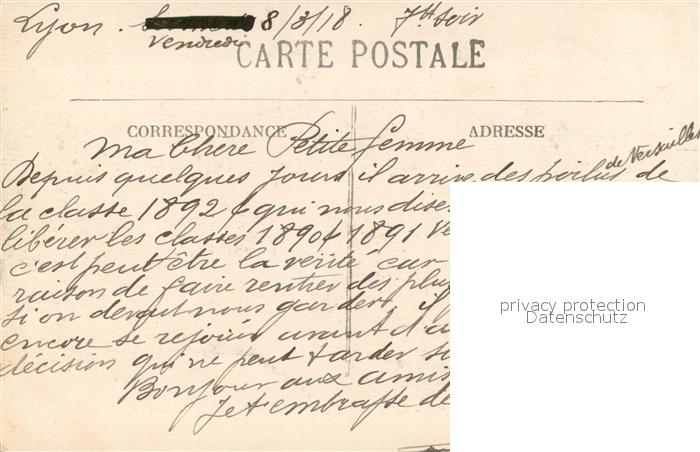 Lyon. Vendredi 8/3/18. 7h soir
CARTE POSTALE
CORRESPONDANCE ADRESSE
Ma Chere Petite femme
Depuis quelques jours il arrive des poilus de Versailles de
la classe 1892 & qui nous disen
libérer les classes 1890 & 1891
c'est peut être la verité car
raison de faire rentrer des plu
si on devait nous garder. il
encore se rejouir avant d'a
décision qui ne peut tarder
Bonjour aux amis
Je t'embrasse de
privacy protection
Datenschutz